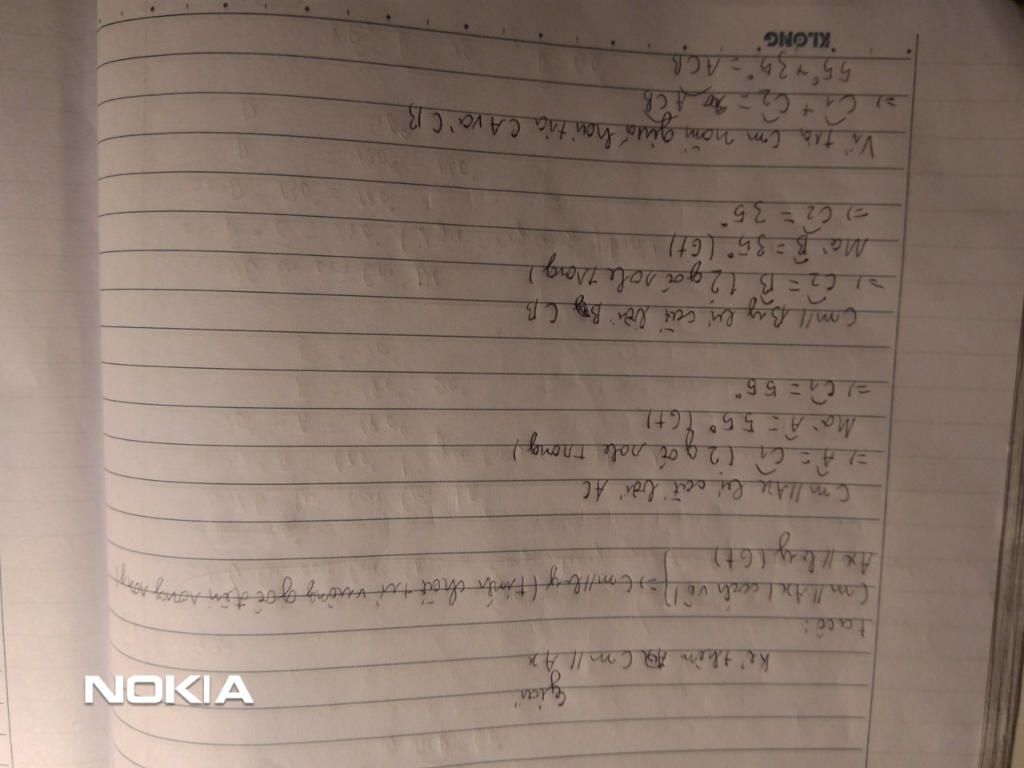 Giải
Kẻ thêm Cm // Ax
ta có:
Cm // Ax (cách vẽ) } => Cm // By (tính chất từ vuông góc đến song song)
Ax // By (Gt)
Cm // Ax bị cắt bởi AC
=> Â = Ĉ1 (2 góc sole trong)
Mà Â = 55° (Gt)
=> Ĉ1 = 55°
Cm // By bị cắt bởi CB
=> Ĉ2 = B̂ (2 góc sole trong)
Mà B̂ = 35° (Gt)
=> Ĉ2 = 35°
Vì tia Cm nằm giữa hai tia CA và CB
=> Ĉ1 + Ĉ2 = ACB
55° + 35° = ACB
KLONG
NOKIA